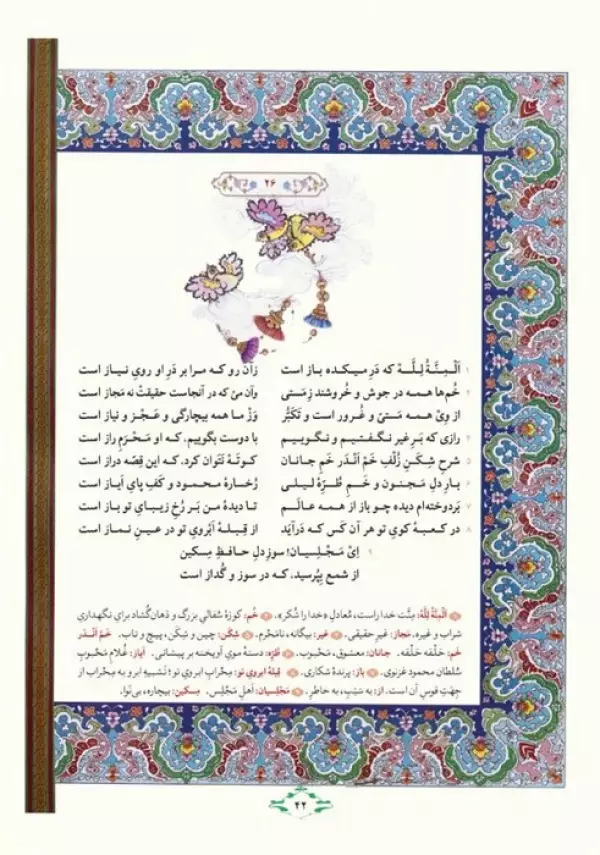 ۲۶
۱ اَلْمِنَّةُ لِلَّهْ که دَرِ میکده باز است زان رو که مرا بر دَرِ او رویِ نیاز است
۲ خُم‌ها همه در جوش و خُروشند زِ مَستی وآن مِیْ که در آنجاست حقیقتْ نه مَجاز است
۳ از وِیْ همه مَستیّ و غُرور است و تَکَبُّر وَزْ ما همه بیچارگی و عَجْز و نیاز است
۴ رازی که بَرِ غیر نگفتیم و نگوییم با دوست بگوییم، که او مَحْرَمِ راز است
۵ شرحِ شِکَنِ زُلْفِ خَمْ اَنْدَر خَمِ جانان کوتَهْ نَتَوان کرد، که این قِصّه دراز است
۶ بارِ دلِ مَجنون و خَمِ طُرّهٔ لیلی رُخسارهٔ محمود و کَفِ پایِ اَیاز است
۷ بَردوخته‌ام دیده چو باز از همه عالَم تا دیدهٔ من بَر رُخِ زیبایِ تو باز است
۸ در کعبهٔ کویِ تو هر آن کَس که دَرآیَد از قِبلهٔ اَبْرویِ تو در عینِ نماز است
۹ اِیْ مَجْلِسیان! سوزِ دلِ حافظِ مِسکین
از شمع بِپُرسید، که در سوز و گُداز است
۱ اَلْمِنَّةُ لِلَّهْ: مِنَّت خدا راست، مُعادلِ «خدا را شُکر». ۲ خُم: کوزهٔ سُفالیِ بزرگ و دَهان‌گُشاد برایِ نگهداریِ
شراب و غیره. مَجاز: غیرِ حقیقی. ۴ غیر: بیگانه، نامَحْرم. ۵ شِکَن: چین و شِکَن، پیچ و تاب. خَمْ اَنْدَر
خَم: حَلْقه حَلْقه. جانان: معشوق، مَحْبوب. ۶ طُرّه: دستهٔ مویِ آویخته بر پیشانی. اَیاز: غُلامِ مَحْبوبِ
سُلطان محمود غزنوی. ۷ باز: پرندهٔ شکاری. ۸ قِبلهٔ ابرویِ تو: مِحْرابِ ابرویِ تو؛ تَشبیهِ ابرو به مِحْراب از
جِهَتِ قوسِ آن است. از: به سَبَبِ، به خاطرِ. ۹ مَجْلِسیان: اَهلِ مَجْلِس. مِسکین: بیچاره، بی‌نَوا.
۴۲